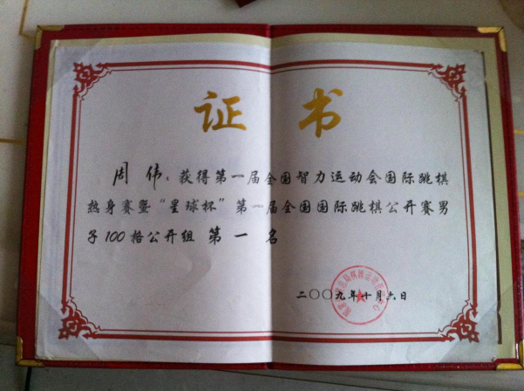 证书
周伟：获得第一届全国智力运动会国际跳棋
热身赛暨“星球杯”第一届全国国际跳棋公开赛男
子100格公开组 第一名
二〇〇九年十月六日